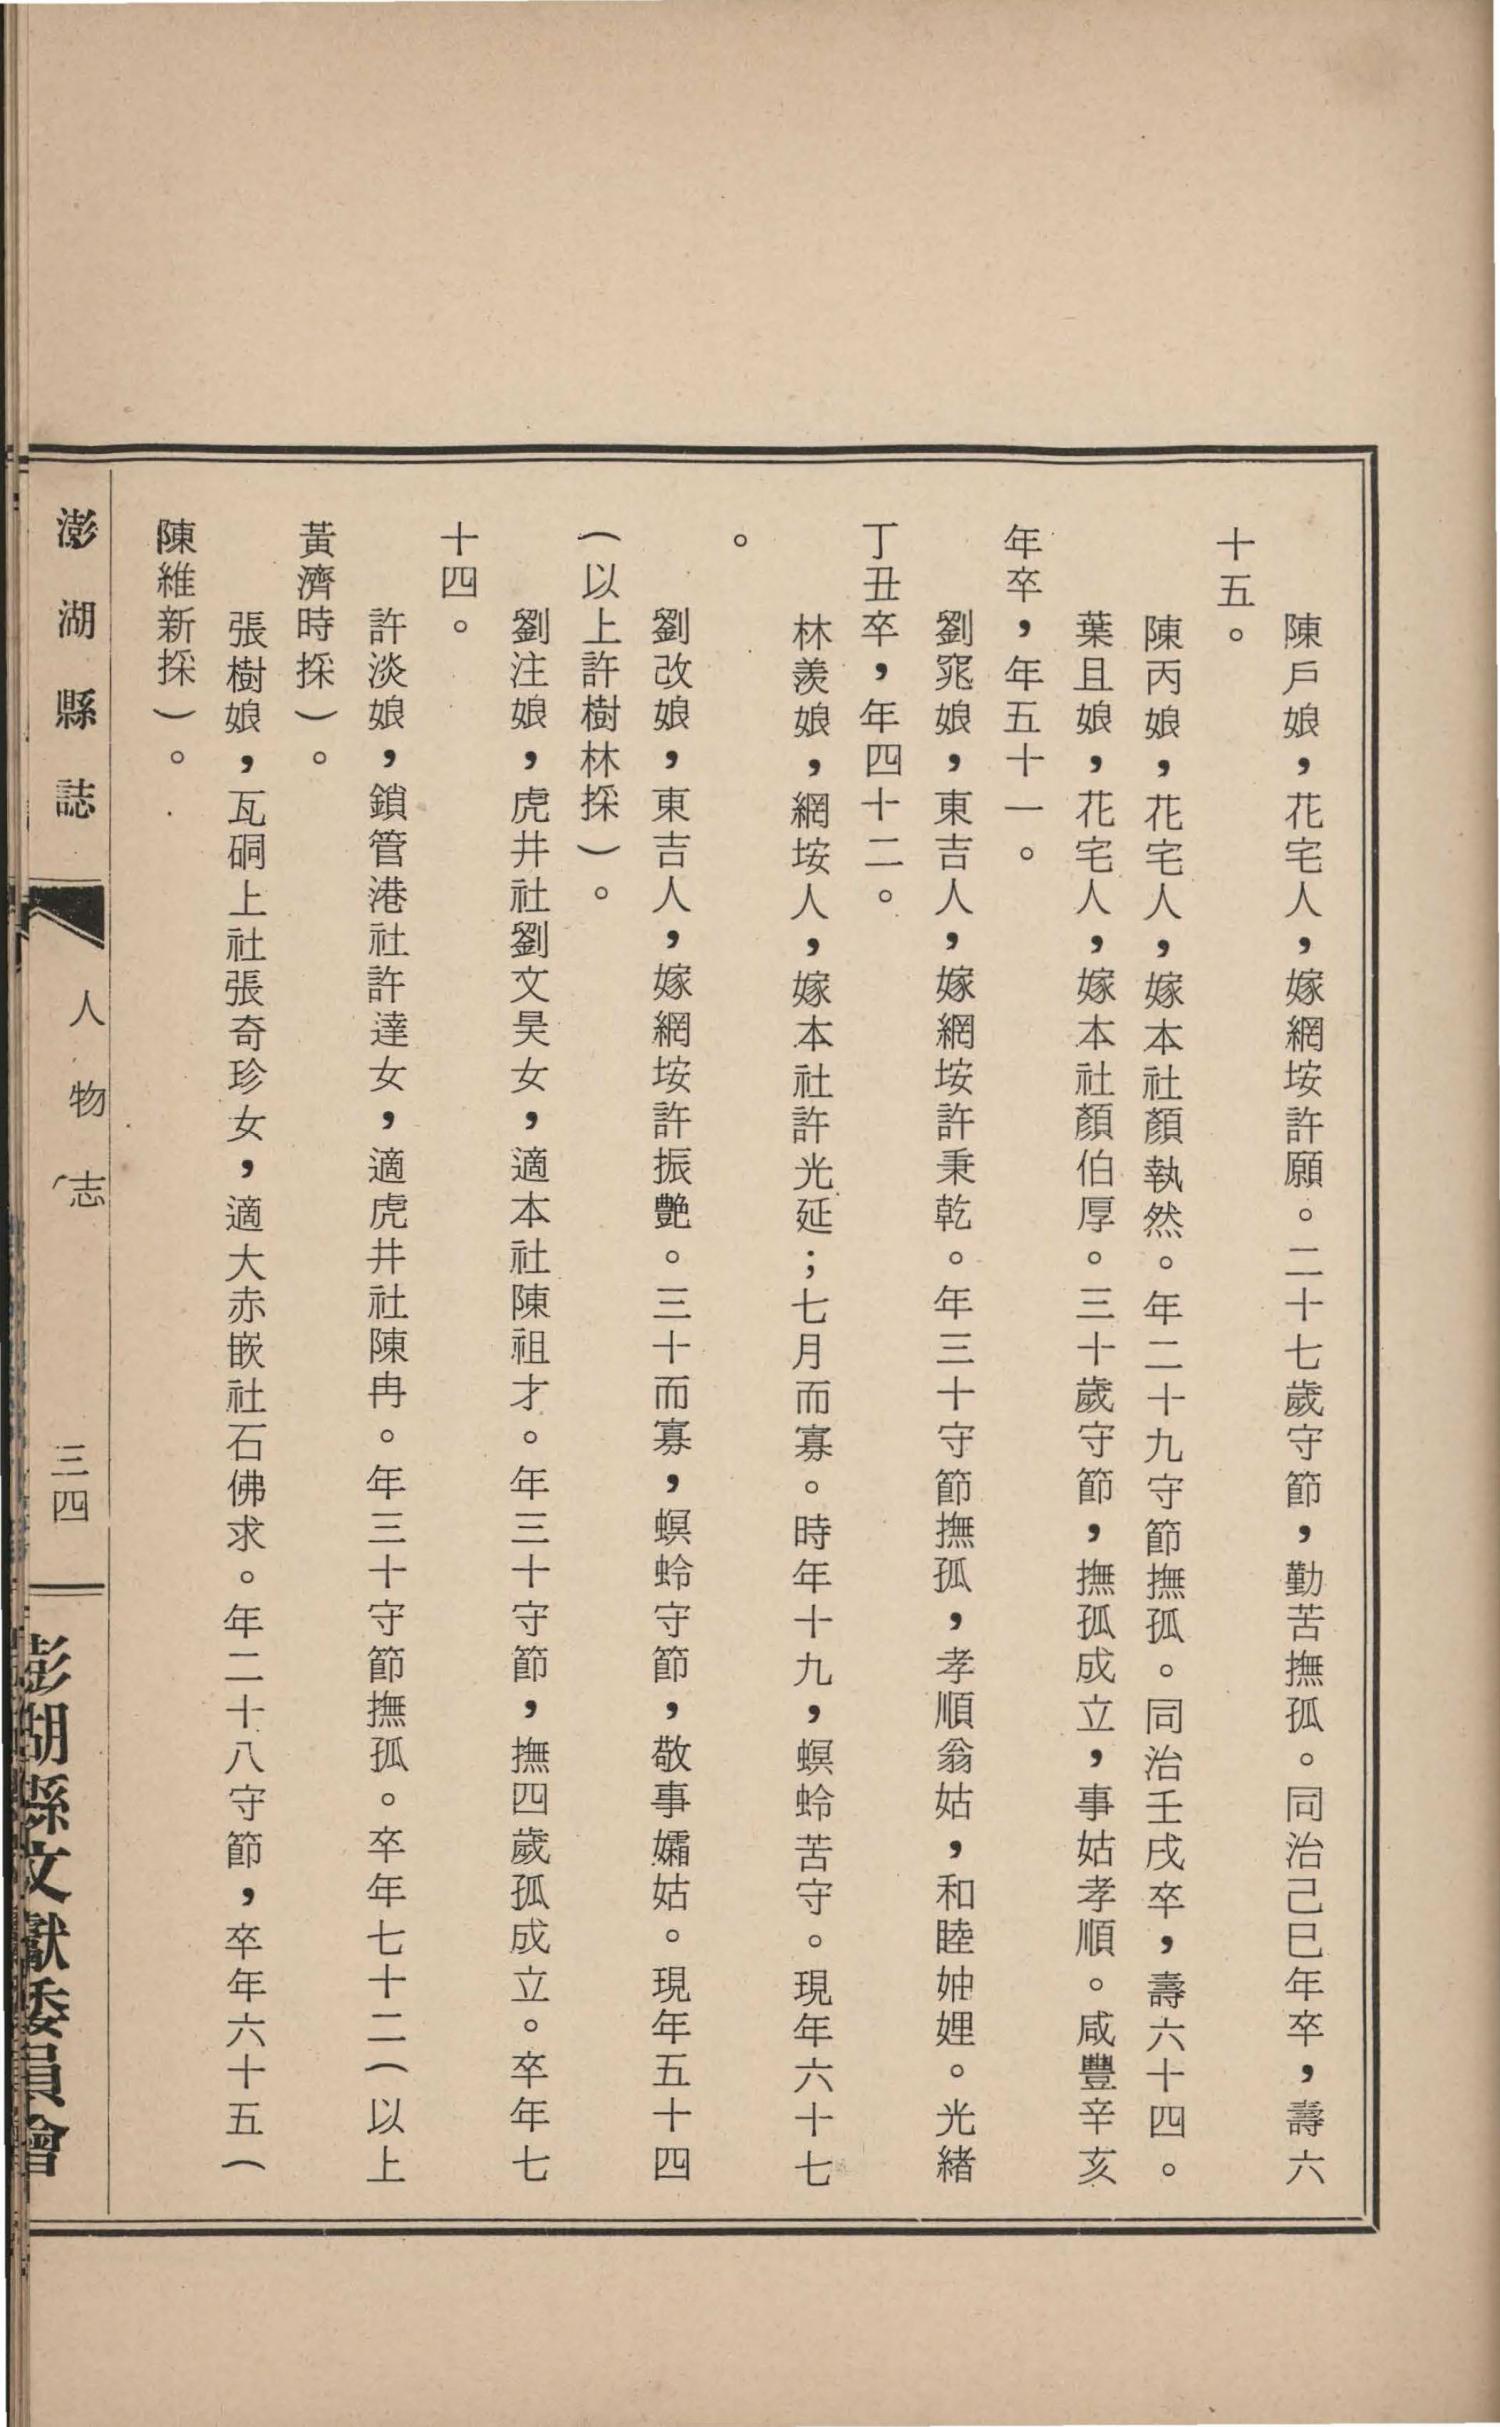 陳戶娘，花宅人，嫁網垵許願。二十七歲守節，勤苦撫孤。同治己巳年卒，壽六
十五。
陳丙娘，花宅人，嫁本社顏執然。年二十九守節撫孤。同治壬戌卒，壽六十四。
葉且娘，花宅人，嫁本社顏伯厚。三十歲守節，撫孤成立，事姑孝順。咸豐辛亥
年卒，年五十一。
劉窕娘，東吉人，嫁網垵許秉乾。年三十守節撫孤，孝順翁姑，和睦妯娌。光緒
丁丑卒，年四十二。
林羨娘，網垵人，嫁本社許光延；七月而寡。時年十九，螟蛉苦守。現年六十七
。
劉改娘，東吉人，嫁網垵許振艷。三十而寡，螟蛉守節，敬事孀姑。現年五十四
（以上許樹林採）。
劉注娘，虎井社劉文昊女，適本社陳祖才。年三十守節，撫四歲孤成立。卒年七
十四。
許淡娘，鎖管港社許達女，適虎井社陳冉。年三十守節撫孤。卒年七十二（以上
黃濟時採）。
張樹娘，瓦硐上社張奇珍女，適大赤嵌社石佛求。年二十八守節，卒年六十五（
陳維新採）。
澎湖縣誌
人物志
三四
澎湖縣文獻委員會